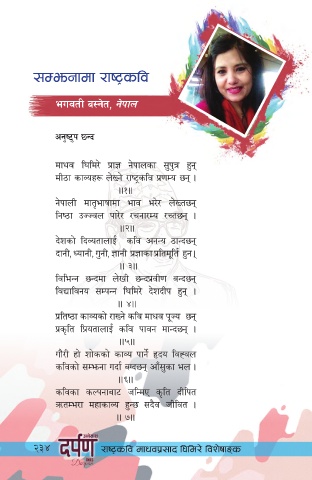 सम्झनामा राष्ट्रकवि
भगवती बस्नेत, नेपाल
अनुष्टुप छन्द
माधव घिमिरे प्राज्ञ नेपालका सुपुत्र हुन्
मीठा काव्यहरू लेख्ने राष्ट्रकवि प्रणम्य छन् ।
॥१॥
नेपाली मातृभाषामा भाव भरेर लेख्तछन्
निष्ठा उज्ज्वल पारेर रचनारम्य रच्तछन् ।
॥२॥
देशको दिव्यतालाई कवि अनन्य ठान्दछन्
दानी, ध्यानी, गुनी, ज्ञानी प्रज्ञाका प्रतिमूर्ति हुन्।
॥ ३॥
विभिन्न छन्दमा लेखी छन्दप्रवीण बन्दछन्
विद्याविनय सम्पन्न घिमिरे देशदीप हुन् ।
॥ ४॥
प्रतिष्ठा काव्यको राख्ने कवि माधव पूज्य छन्
प्रकृति प्रियतालाई कवि पावन मान्दछन् ।
॥५॥
गौरी हो शोकको काव्य पार्ने हृदय विह्वल
कविको सम्झना गर्दा बग्दछन् आँसुका भल ।
॥६॥
कविका कल्पनाबाट जन्मिए कृति दीपित
ऋतम्भरा महाकाव्य हुन्छ सदैव जीवित ।
॥ ७॥
२३४ दर्पण राष्ट्रकवि माधवप्रसाद घिमिरे विशेषाङ्क